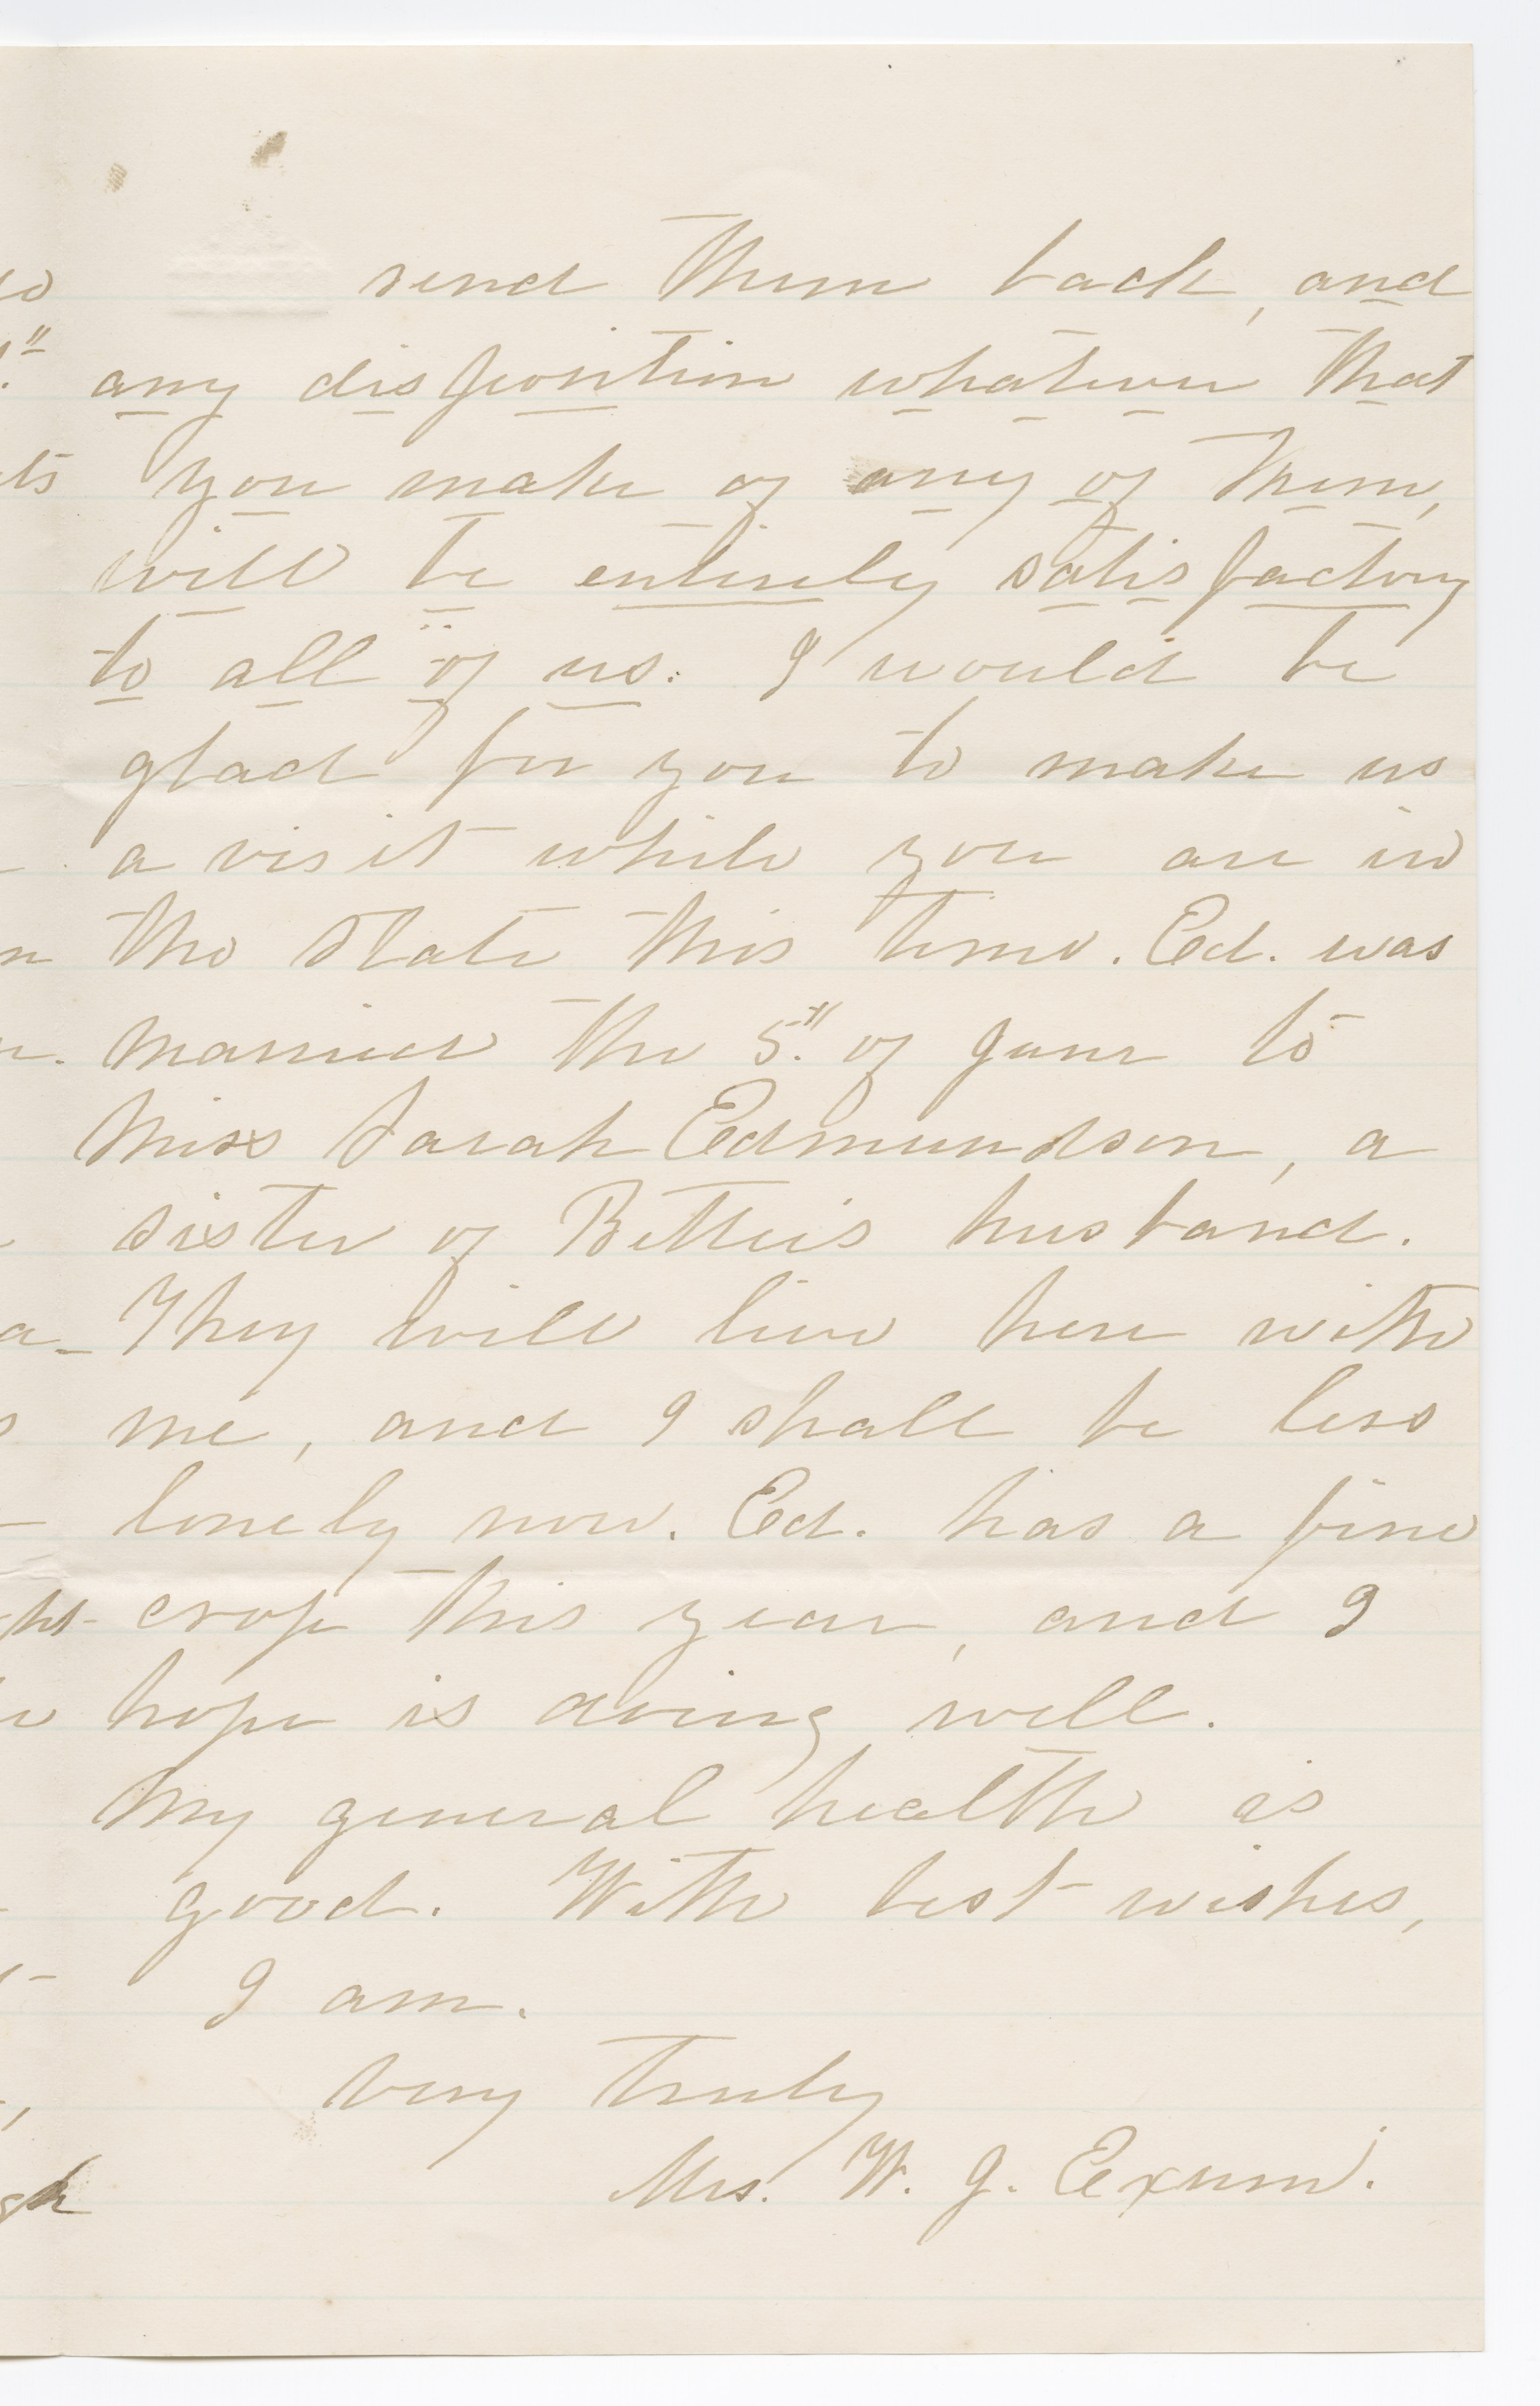 send them back, and
any disposition whatever that
you make of any of them,
will be entirely satisfactory
to all of us. I would be
glad for you to make us
a visit while you are in
the State this time. Ed. was
married the 5th. of June to
Miss Sarah Edmundson, a
sister of Bettie's husband.
They will live here with
me, and I shall be less
lonely now. Ed. has a fine
crop this year, and I
hope is doing well.
My general health is
good. With best wishes,
I am.
Very truly
Mrs. W. J. Exum.